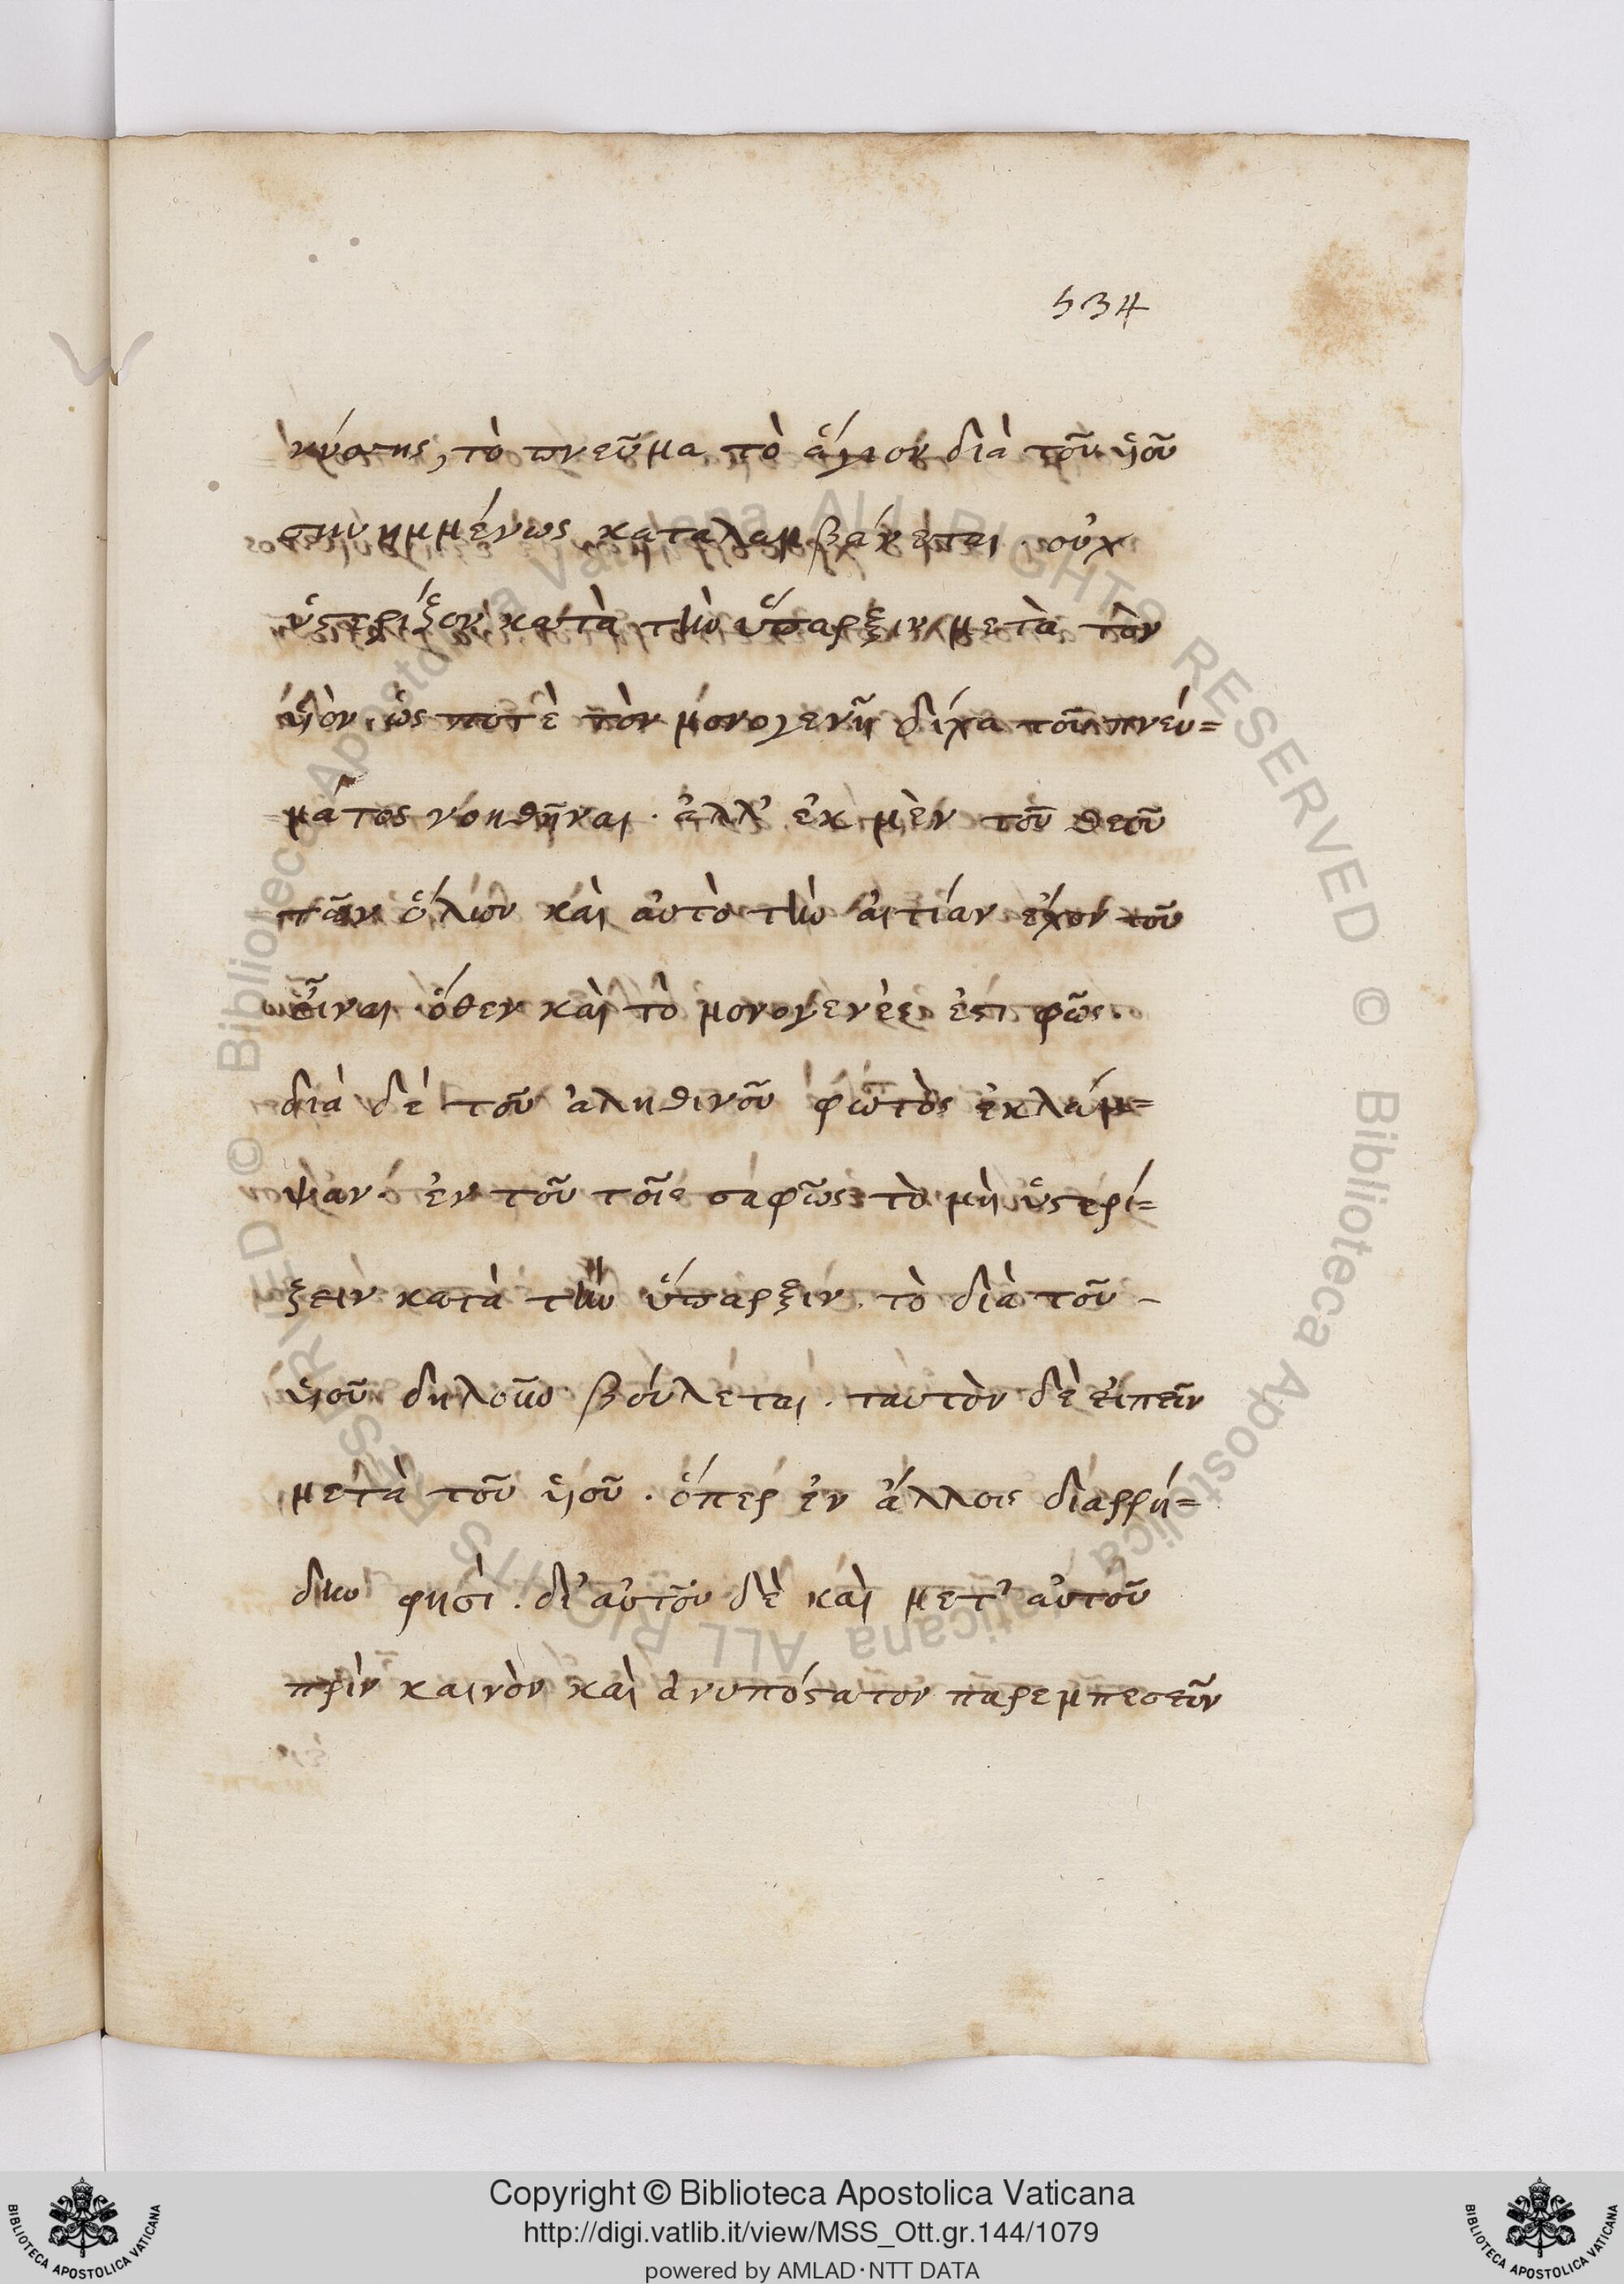 534
κύσης, τὸ πνεῦμα τὸ ἅγιον διὰ τοῦ ὑιοῦ
συνημμένως καταλαμβάνεται. οὐχ
ὑστερίζον κατὰ τὴν ὕπαρξιν μετὰ τὸν
ὑιὸν, ὥς ποτὲ τὸν μονογενῆ δίχα τοῦ πνεύ=
ματος νοηθῆναι. ἀλλ' ἐκ μὲν τοῦ θεοῦ
τῶν ὅλων καὶ αὐτὸ τὴν αἰτίαν ἔχον τοῦ
εἶναι ὅθεν καὶ τὸ μονογενὲς ἐστὶ φῶς.
διὰ δὲ τοῦ ἀληθινοῦ φωτὸς ἐκλάμ=
ψαν. ἐν τοῦ τοῖς σαφῶς τὸ μὴ ὑστερί=
ζειν κατὰ τὴν ὕπαρξιν. τὸ διὰ τοῦ -
ὑιοῦ δηλοῦν βούλεται. ταυτὸν δὲ εἰπεῖν
μετὰ τοῦ ὑιοῦ. ὅπερ ἐν ἄλλοις διαρρή=
δην φησὶ. δι' αὐτοῦ δὲ καὶ μετ' αὐτοῦ
πρὶν καινὸν καὶ ἀνυπόστατον παρεμπεσεῖν
Biblioteca Apostolica Vaticana ALL RIGHTS RESERVED ©
Biblioteca Apostolica Vaticana ALL RIGHTS RESERVED ©
Copyright © Biblioteca Apostolica Vaticana
http://digi.vatlib.it/view/MSS_Ott.gr.144/1079
powered by AMLAD·NTT DATA
BIBLIOTECA APOSTOLICA VATICANA
BIBLIOTECA APOSTOLICA VATICANA